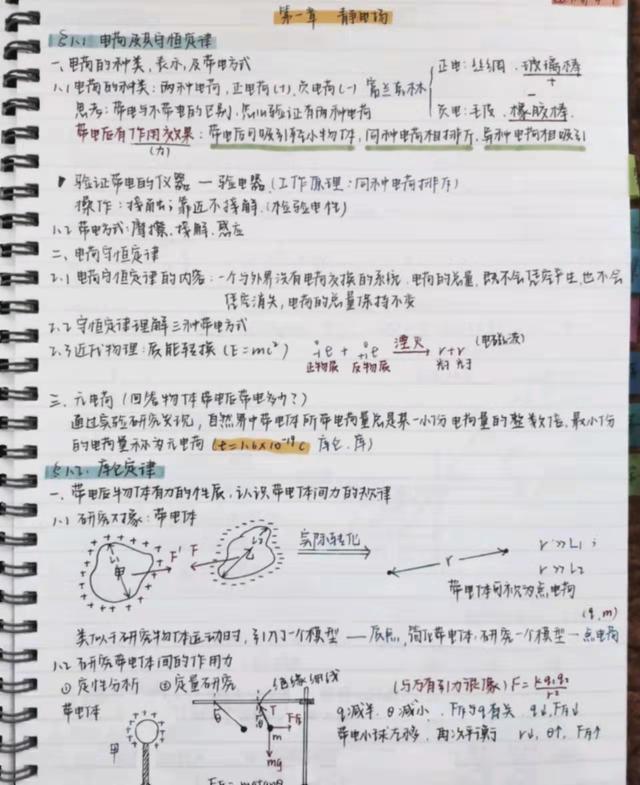 第一章 静电场
§1.1 电荷及其守恒定律
一、电荷的种类、表示、及带电方式
1.1 电荷的种类：两种电荷，正电荷(+)、负电荷(-) 富兰克林
正电：丝绸、玻璃棒 +
负电：毛皮、橡胶棒 -
思考：带电与不带电的区别，怎么验证有两种电荷
带电后有作用效果：带电后可吸引轻小物体，同种电荷相排斥，异种电荷相吸引
(力)
验证带电的仪器 — 验电器 (工作原理：同种电荷排斥)
操作：接触；靠近不接触 (检验电性)
1.2 带电方式：摩擦、接触、感应
二、电荷守恒定律
2.1 电荷守恒定律的内容：一个与外界没有电荷交换的系统，电荷的总量，既不会凭空产生，也不会
凭空消失，电荷的总量保持不变
2.2 守恒定律理解三种带电方式
2.3 近代物理：质能转换 (E=mc²) e + e 湮灭 r+r (电磁波)
正物质 反物质 光子 光子
三、元电荷 (回答物体带电后带电多少？)
通过实验研究发现，自然界中带电体所带电荷量总是某一小份电荷量的整数倍，最小份
的电荷量称为元电荷 (e=1.6×10⁻¹⁹C 库仑、库)
§1.2 库仑定律
一、带电后物体有力的性质，认识带电体间力的规律
1.1 研究对象：带电体
L₁ 甲 F' F L₂ 乙 实际转化 r r≫L₁；
r≫L₂
带电体可视为点电荷
(q, m)
类似于研究物体运动时，引入了一个模型 — 质点，简化带电体，研究一个模型 — 点电荷
1.2 研究带电体间的作用力
① 定性分析 ② 定量研究 绝缘细线 (与万有引力很像) F=kq₁q₂/r²
带电体 θ θ T F斥 q减半，θ减小，F斥与q有关，q↓，F斥↓
甲 m 带电小球左移，再次平衡 r↓，θ↑，F斥↑
mg
F斥=mgtanθ